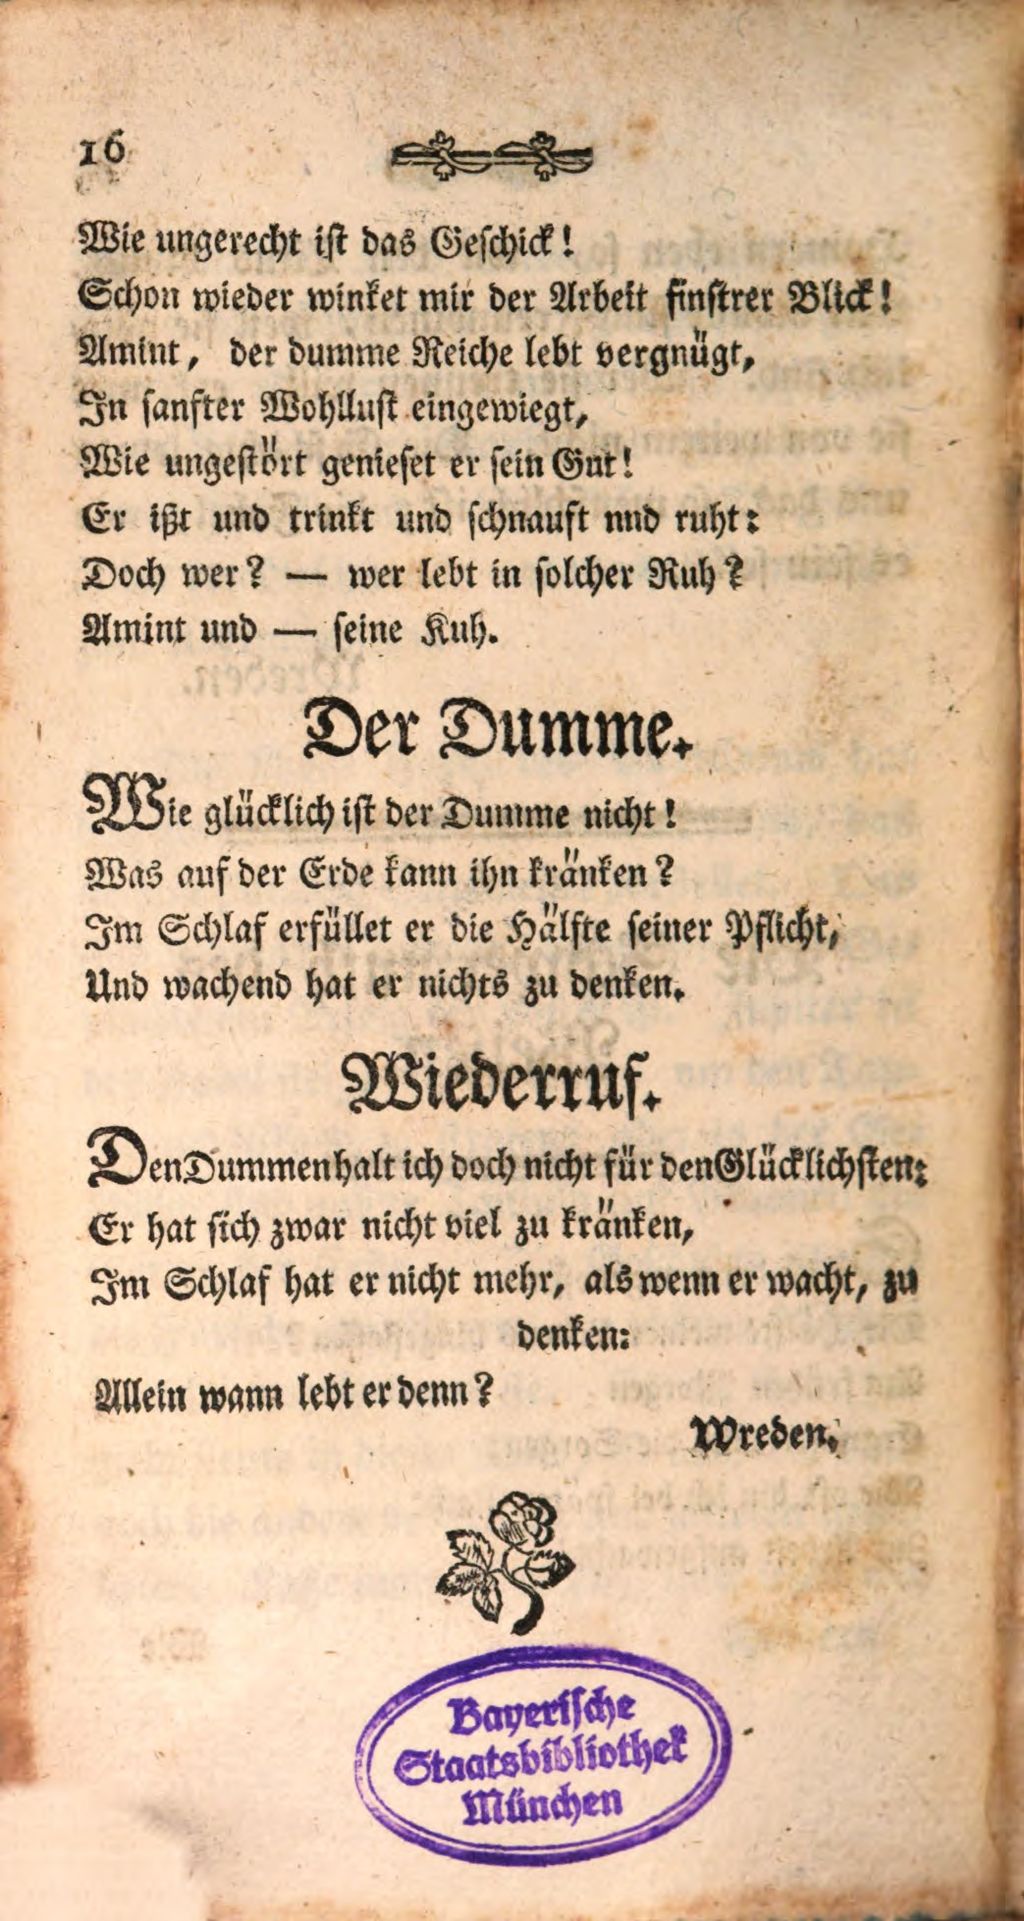 16
Wie ungerecht ist das Geschick!
Schon wieder winket mir der Arbeit finstrer Blick!
Amint, der dumme Reiche lebt vergnügt,
In sanfter Wohllust eingewiegt,
Wie ungestört genieset er sein Gut!
Er ißt und trinkt und schnauft nnd ruht:
Doch wer? — wer lebt in solcher Ruh?
Amint und — seine Kuh.
Der Dumme.
Wie glücklich ist der Dumme nicht!
Was auf der Erde kann ihn kränken?
Im Schlaf erfüllet er die Hälfte seiner Pflicht,
Und wachend hat er nichts zu denken.
Wiederruf.
Den Dummen halt ich doch nicht für den Glücklichsten:
Er hat sich zwar nicht viel zu kränken,
Im Schlaf hat er nicht mehr, als wenn er wacht, zu
denken:
Allein wann lebt er denn?
Wreden.
Bayerische
Staatsbibliothek
München